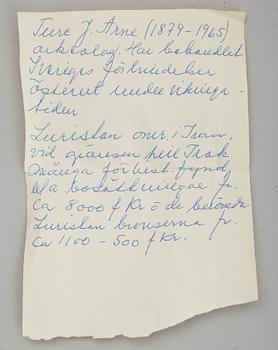 Ture J. Arne (1879-1965)
arkeolog. Har behandlat
Sveriges förbindelser
österut under vikinga-
tiden
Luristan omr. i Iran,
vid gränsen till Irak.
Många förhist. fynd
bl a bosättningar fr.
ca 8000 f Kr o de berömda
Luristan bronserna fr.
ca 1100 - 500 f Kr.